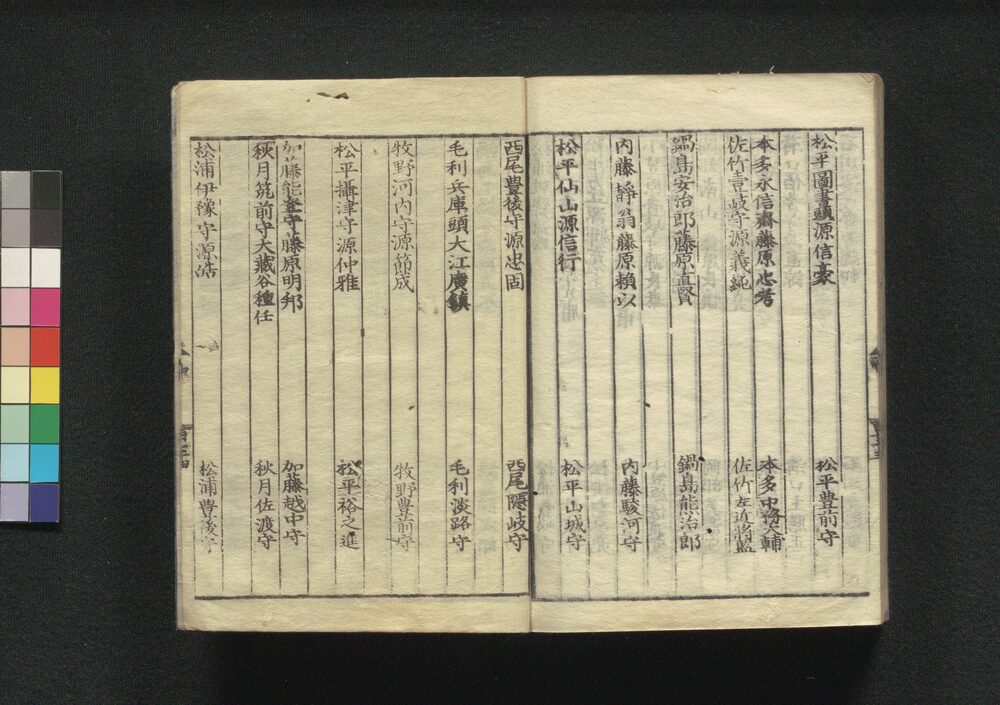 松平圖書頭源信豪 松平豊前守
本多永信齋藤原忠考 本多中務大輔
佐竹壹岐守源義純 佐竹左近將監
鍋島安治郎藤原直賢 鍋島熊治郎
内藤靜翁藤原頼以 内藤駿河守
松平仙山源信行 松平山城守
西尾豊後守源忠固 西尾隠岐守
毛利兵庫頭大江廣鎮 毛利淡路守
牧野河内守源節成 牧野豊前守
松平攝津守源仲雅 松平裕之進
加藤能登守藤原明邦 加藤越中守
秋月筑前守大藏谷種任 秋月佐渡守
松浦伊豫守源皓 松浦豊後守